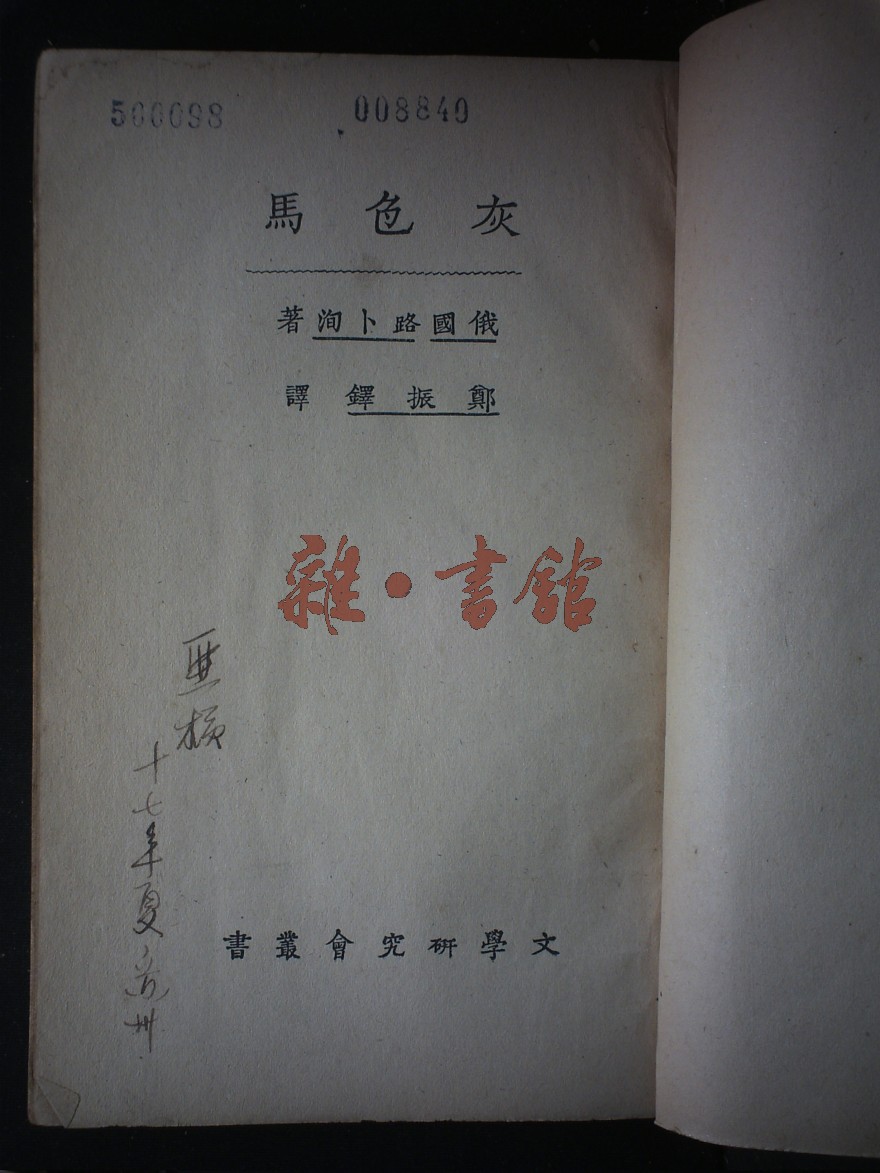 500098 008840
灰色馬
俄國路卜洵著
鄭振鐸譯
雜·書館
十七年夏
文學研究會叢書